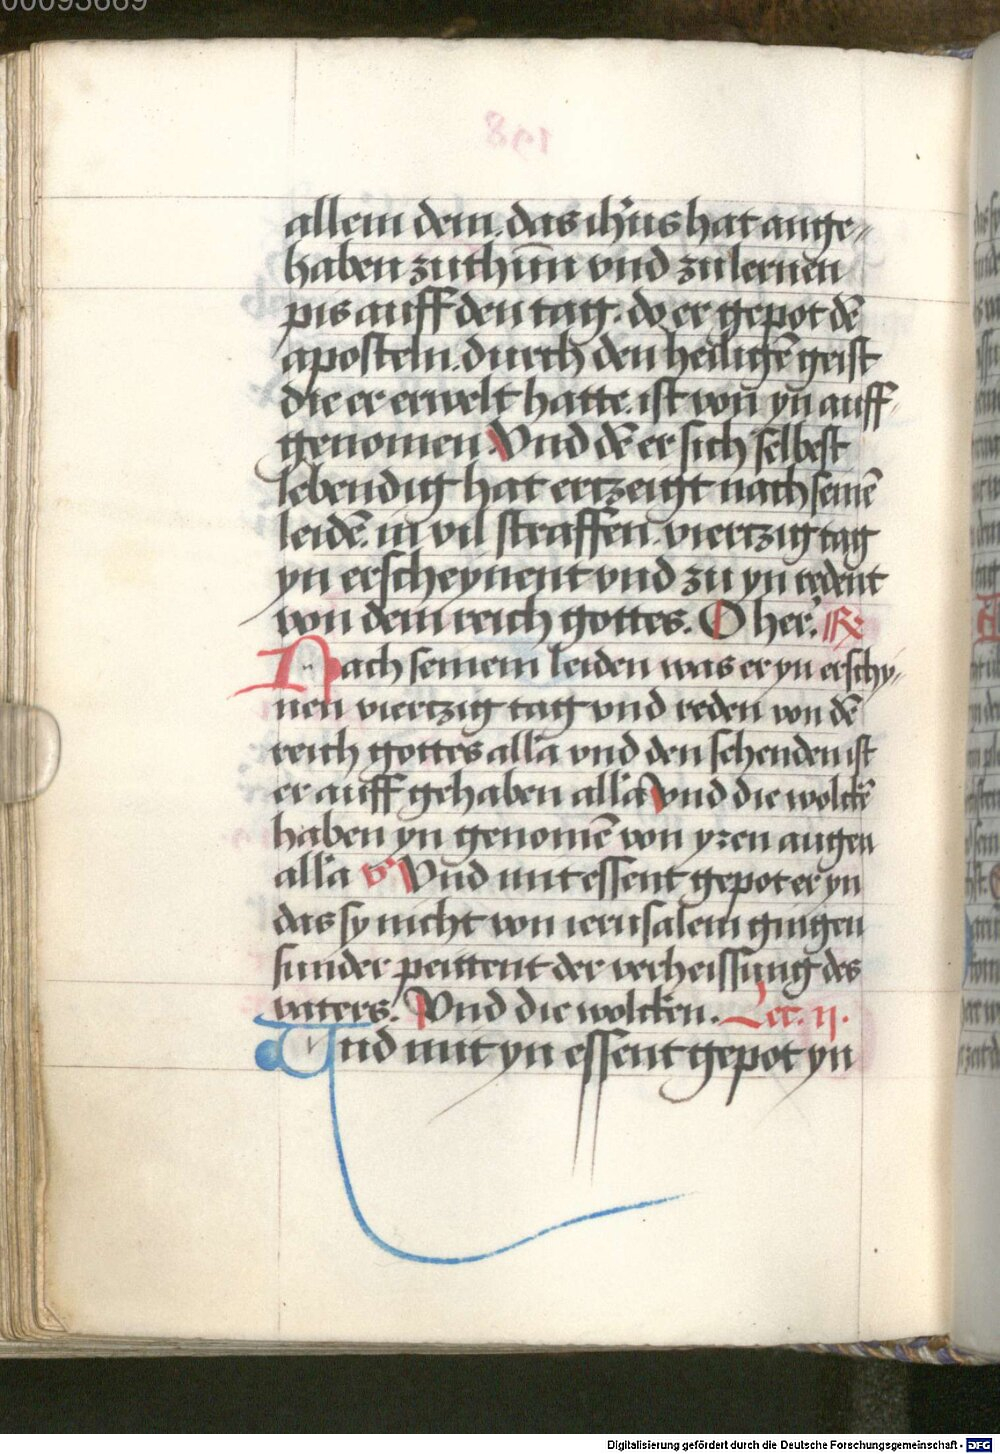 00093669
allem dem. das ih'us hat ange-
haben zuthūn vnd zu lernen
pis auff den tag. do er gepot dē
aposteln. durch den heiligē geist
die er erwelt hatte. ist von yn auff-
genomen. Vnd dē er sich selbest
lebendig hat ertzeigt nach seinē
leidē. in vil straffen. viertzig tag
yn erscheynent vnd zu yn redent
von dem reich gottes. O her'. R
Nach seinem leiden was er yn erschy-
nen viertzig tag vnd reden von dē
reich gottes all'a vnd den sehenden ist
er auff gehaben all'a Vnd die wolckē
haben yn genomē von yren augen
all'a V' Vnd mit essent gepot er yn
das sy nicht von ierusalem gingen
sunder peittent der verheissung des
vaters. Vnd die wolcken. Lec. ij.
Vnd mit yn essent gepot yn
Digitalisierung gefördert durch die Deutsche Forschungsgemeinschaft - DFG